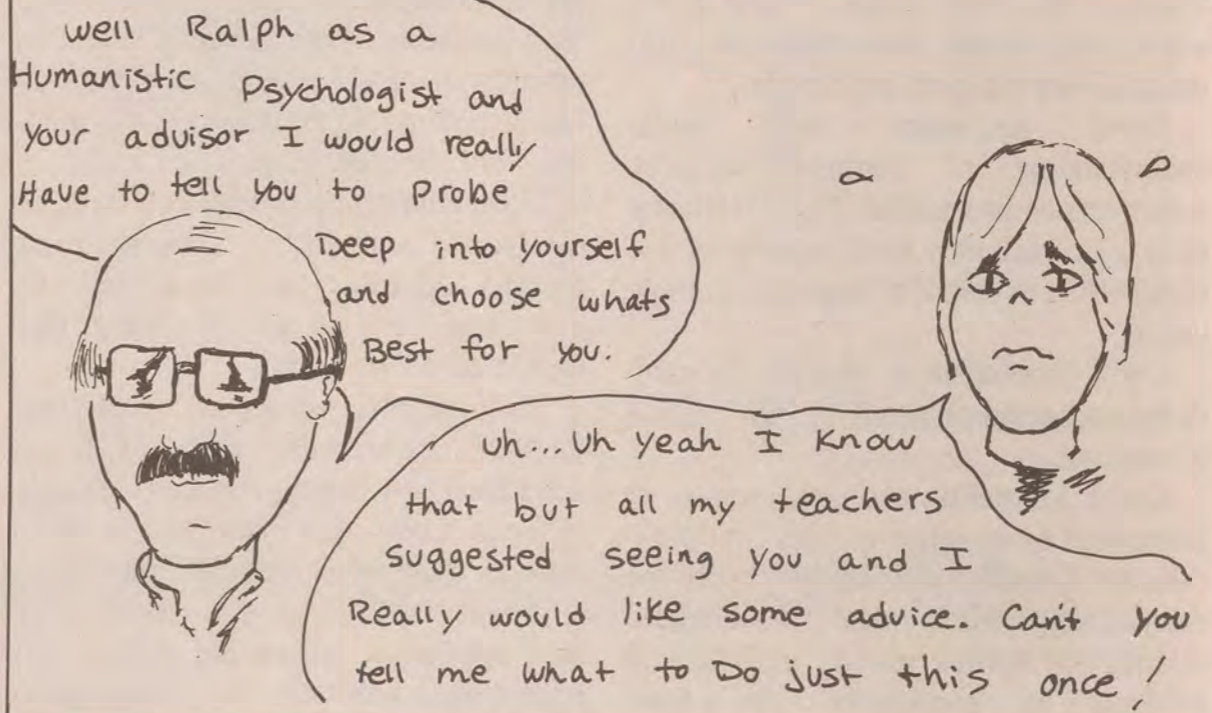 well Ralph as a
Humanistic Psychologist and
your advisor I would really
Have to tell you to Probe
Deep into yourself
and choose whats
Best for you.
uh...uh yeah I know
that but all my teachers
suggested seeing you and I
Really would like some advice. Can't you
tell me what to Do just this once!